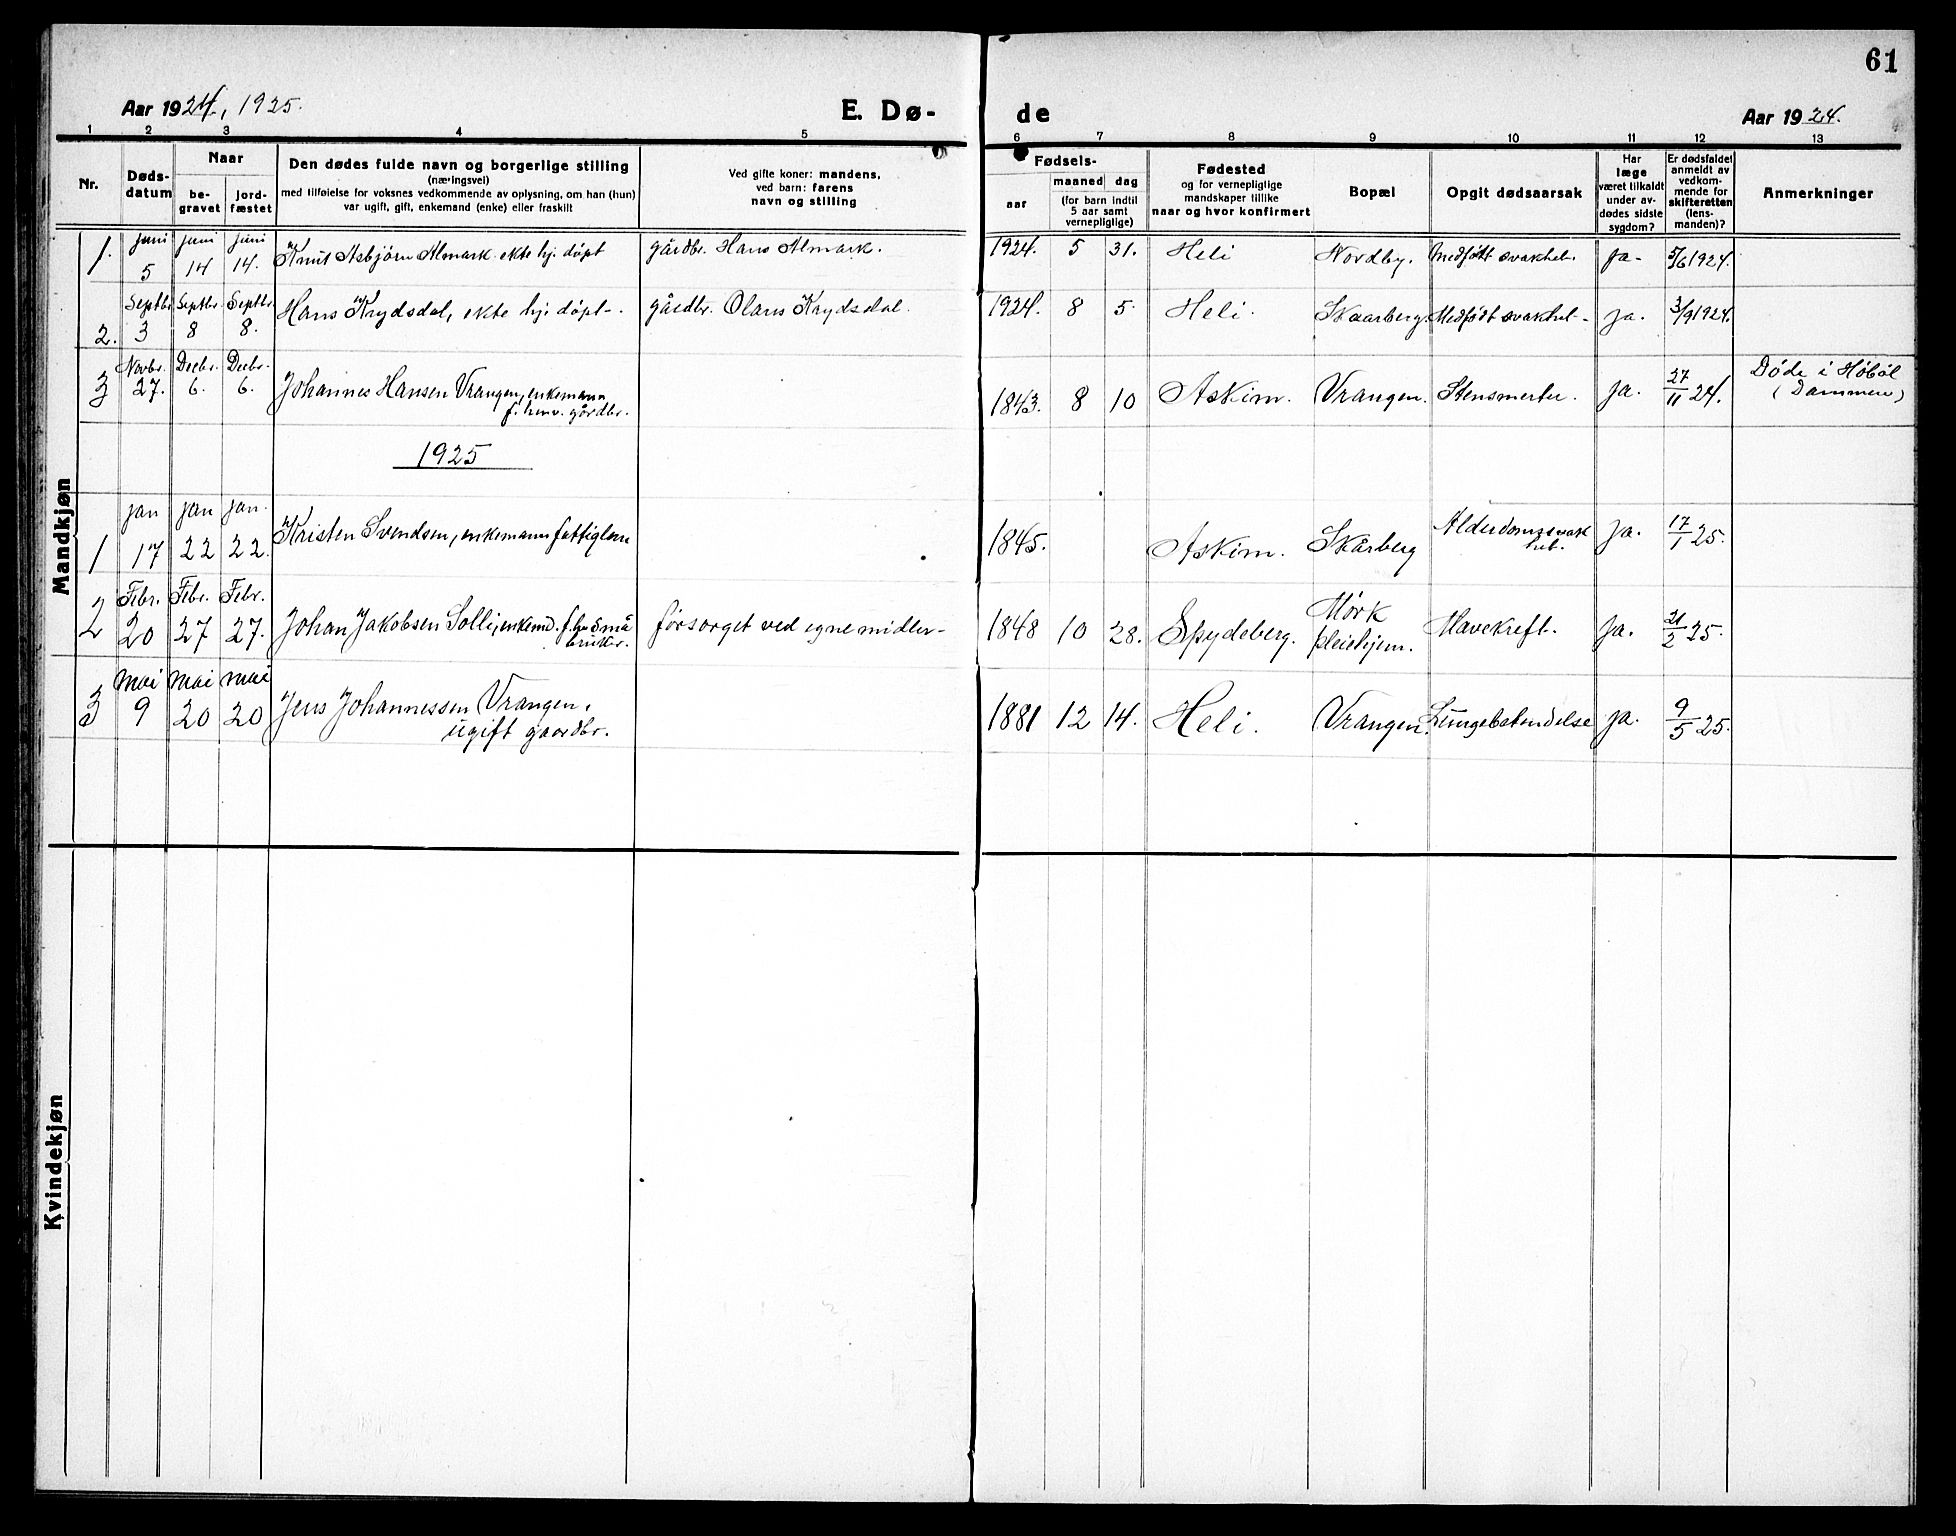 61
Aar 1924, 1925.
E. Dø-
de
Aar 1924.
1 2 3 4 5 6 7 8 9 10 11 12 13
Nr.
Døds-
datum
Naar
be-
gravet
jord-
fæstet
Den dødes fulde navn og borgerlige stilling
(næringsvei)
med tilføielse for voksnes vedkommende av oplysning, om han (hun)
var ugift, gift, enkemand (enke) eller fraskilt
Ved gifte koner: mandens,
ved barn: farens
navn og stilling
Fødsels-
aar
maaned dag
(for barn indtil
5 aar samt
vernepligtige)
Fødested
og for vernepligtige
mandskaper tillike
naar og hvor konfirmert
Bopæl
Opgit dødsaarsak
Har
læge
været tilkaldt
under av-
dødes sidste
sygdom?
Er dødsfaldet
anmeldt av
vedkom-
mende for
skifteretten
(lens-
manden)?
Anmerkninger
Mandkjøn
1. juni 5 juni 14 juni 14. Knut Asbjørn Almark. ekte hj. døpt gårdbr. Hans Almark. 1924. 5 31. Heli Nordby. Medfött svakhet. Ja- 5/6 1924.
2. Septbr. 3 Septbr. 8 Septbr. 8. Hans Krydsdal, ekte hj. döpt-. gårdbr. Olaus Krydsdal. 1924. 8 5. Heli. Skaarberg. Medfödt svakhet- ja. 3/9 1924.
3 Novbr. 27. Decbr. 6. Decbr. 6. Johannes Hansen Vrangen, enkemann
f. henv. gårdbr. 1843. 8 10 Askim. Vrangen. Stensmerter. ja. 27/11 24. Døde i Höböl
(Dammen)
1925
1 jan 17 jan 22 jan. 22. Kristen Svendsen, enkemann fattiglem 1845. Askim. Skårberg Alderdomssvak
het. Ja. 17/1 25.
2 Febr. 20 Febr. 27 Febr. 27. Johan Jakobsen Solli, enkemd. f. hv. små
bruker. försorget ved egne midler- 1848 10 28. Spydeberg. Mörk
pleiehjem. Mavekreft. ja. 21/2 25.
3 mai 9 mai 20 mai 20 Jens Johannessen Vrangen,
ugift gaardbr. 1881 12 14. Heli. Vrangen. Lungebetendelse ja. 9/5 25.
Kvindekjøn